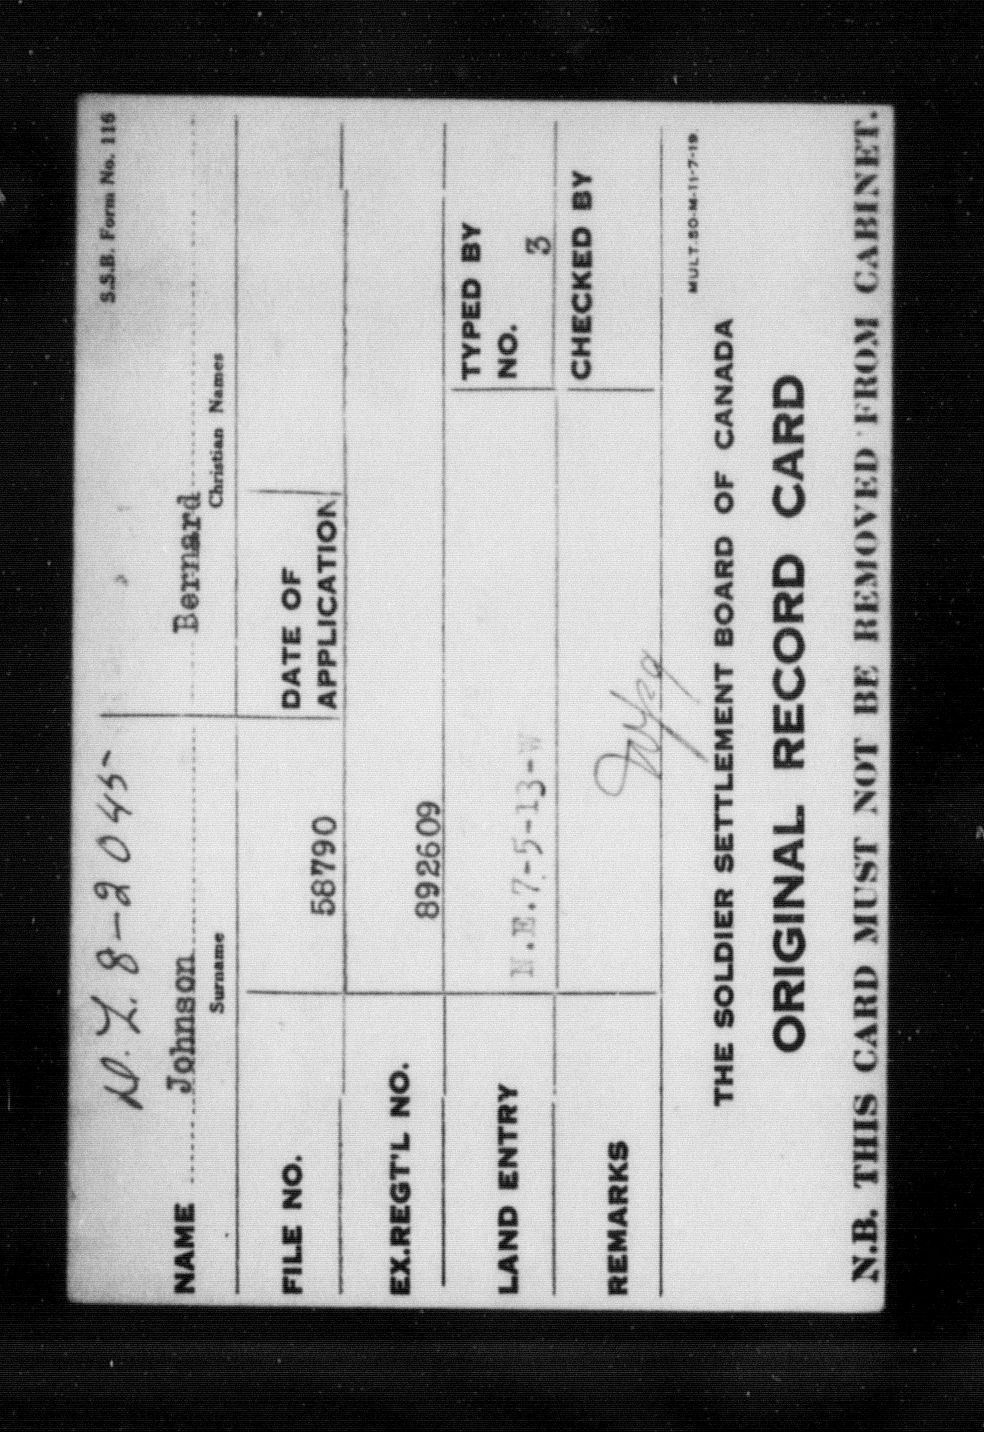 S.S.B. Form No. 116
D.L. 8-2045-
NAME Johnson Bernard
Surname Christian Names
FILE NO. 58790 DATE OF APPLICATION
EX.REGT'L NO. 892609
LAND ENTRY N.E.7-5-13-W TYPED BY NO. 3
REMARKS CHECKED BY
MULT.50-M-11-7-19
THE SOLDIER SETTLEMENT BOARD OF CANADA
ORIGINAL RECORD CARD
N.B. THIS CARD MUST NOT BE REMOVED FROM CABINET.